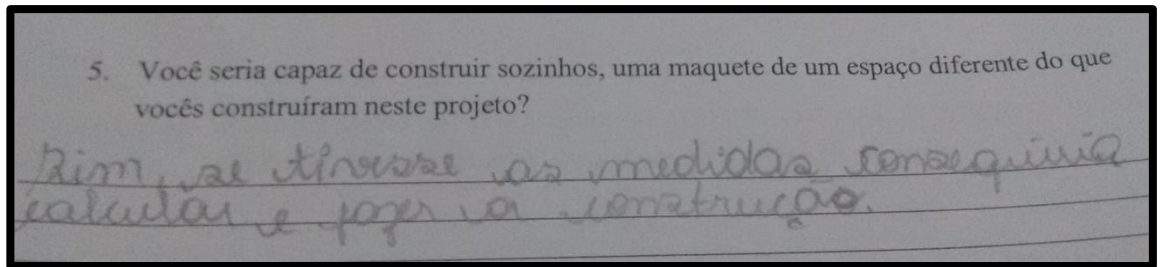 5. Você seria capaz de construir sozinhos, uma maquete de um espaço diferente do que
vocês construíram neste projeto?
Sim, se tivesse as medidas conseguiria
calcular e fazer a construção.